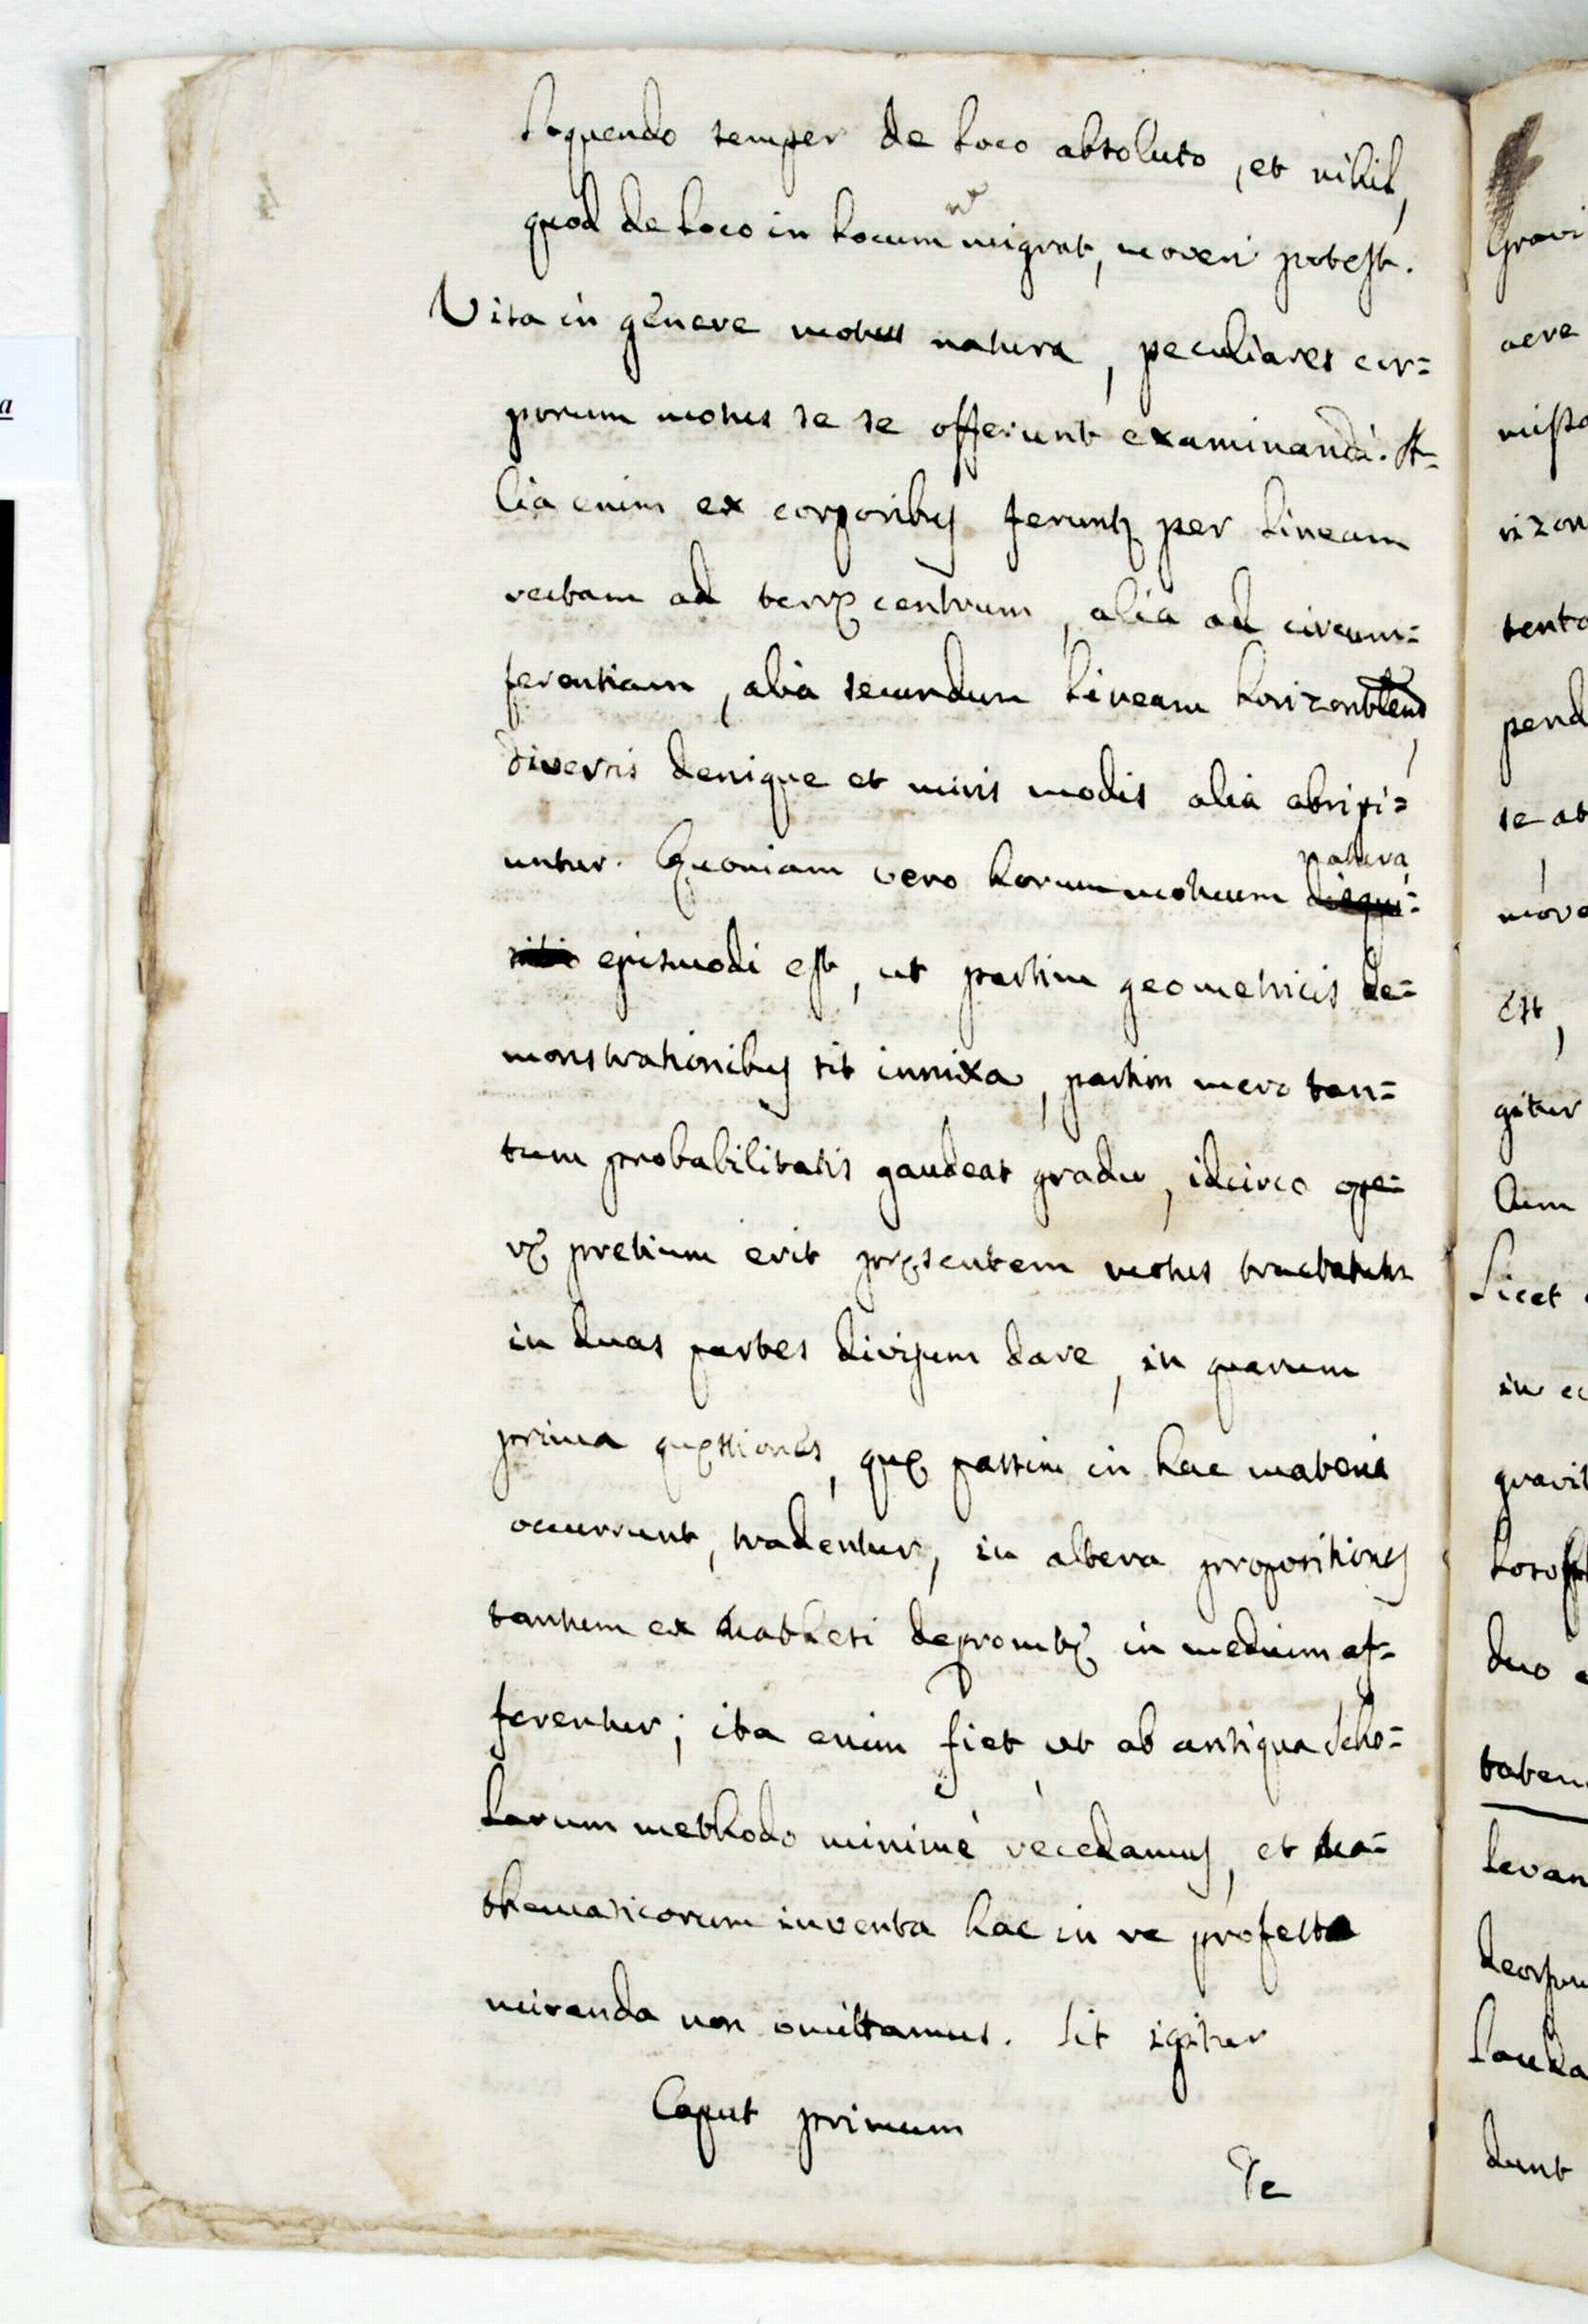 loquendo semper de loco absoluto, et nihil,
quod de loco in locum nō migrat, moveri potest.
Visa in genere motus natura, peculiares cor=
porum motus se se offerunt examinandi. A=
lia enim ex corporibus ferunt per lineam
rectam ad terræ centrum, alia ad circum=
ferentiam, alia secundum lineam horizontalem,
diversis denique et miris modis alia abripi=
untur. Quoniam vero horum motuum natura
ejusmodi est, ut partim geometricis de=
monstrationibus sit innixa, partim mero tan=
tum probabilitatis gaudeat gradu, idcirco ope=
ræ pretium erit præsentem motus tractatum
in duas partes divisum dare, in quarum
prima quæstiones, quæ passim in hac materia
occurrunt, tradentur, in altera propositiones
tantum ex Mathesi depromtæ in medium af=
ferentur; ita enim fiet ut ab antiqua Scho=
larum methodo minimè recedamus, et Ma=
thematicorum inventa hac in re profecto
miranda non omittamus. Sit igitur
Caput primum
De
Gravi
aere
rizon
pend
se at
est,
gitur
Cum
Licet
gravit
duo
levan
dunt